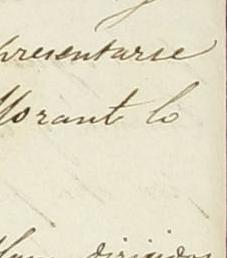 presentarse
Morant lo
dirigidos